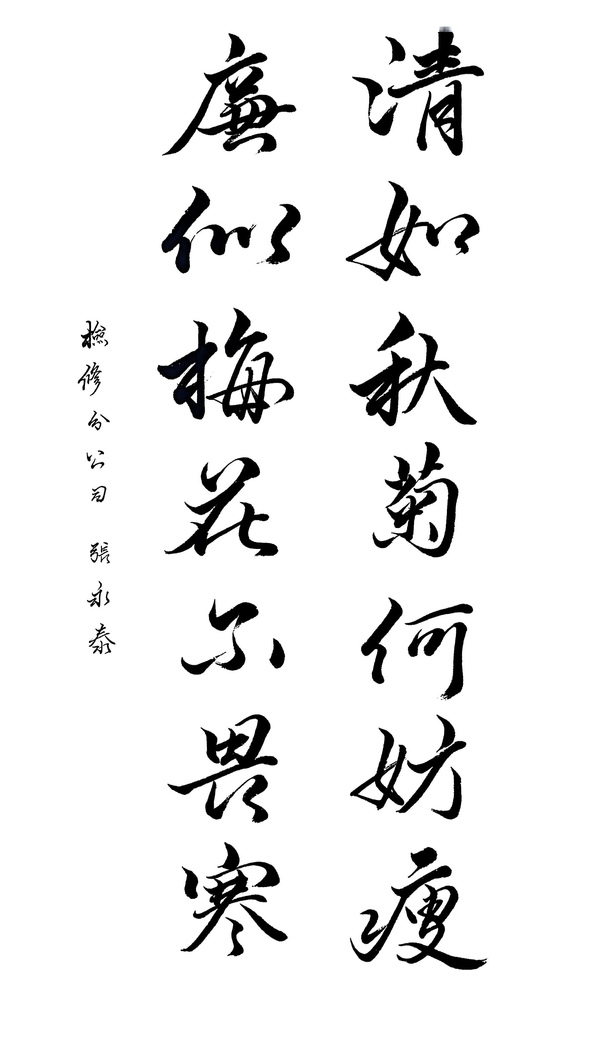 清如秋菊何妨瘦
廉似梅花不畏寒
检修分公司 張永泰